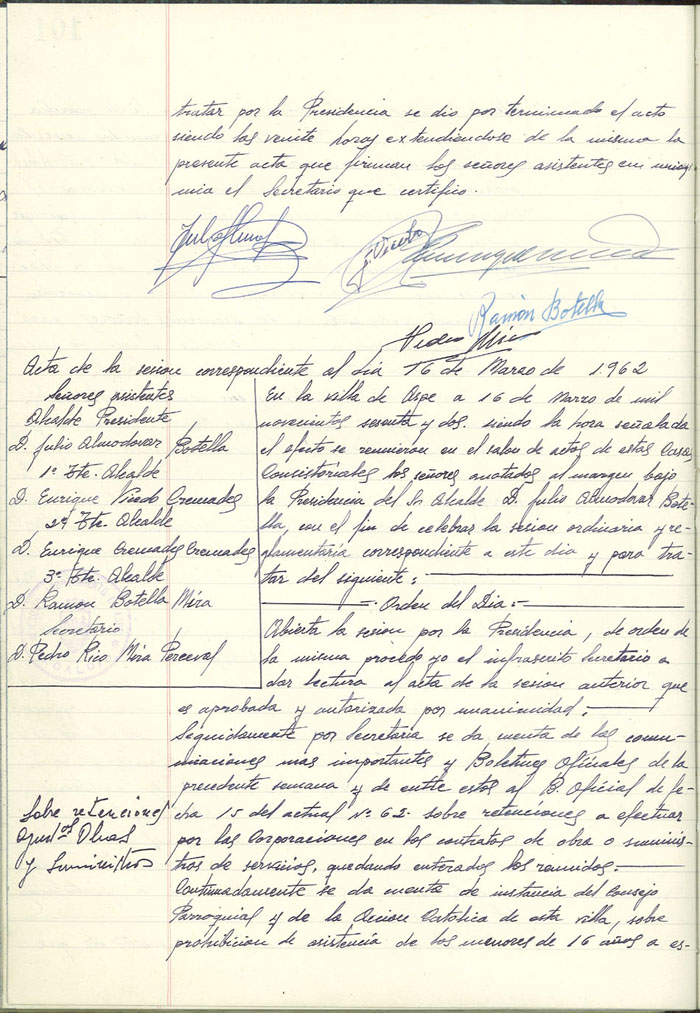 tratar por la Presidencia se dio por terminado el acto
siendo las veinte horas extendiendose de la misma la
presente acta que firman los señores asistentes con
mia el Secretario que certifico.
Ramón Botella
Pedro
Acta de la sesion correspondiente al dia 16 de Marzo de 1962
Señores asistentes
Alcalde Presidente
D. Julio Almodovar Botella
1º Tte. Alcalde
D. Enrique Cremades
2º Tte. Alcalde
D. Enrique Cremades Cremades
3º Tte. Alcalde
D. Ramon Botella Mira
Secretario
D. Pedro Rico Mira Perceval
En la villa de Aspe a 16 de Marzo de mil
novecientos sesenta y dos. siendo la hora señalada
el efecto se reunieron en el salon de actos de estas Casas
Consistoriales los señores anotados al margen bajo
la Presidencia del Sr Alcalde D. Julio Almodovar Bote-
lla, con el fin de celebrar la sesion ordinaria y re-
glamentaria correspondiente a este dia y para tra-
tar del siguiente:
Orden del Dia:
Abierta la sesion por la Presidencia, de orden de
la misma procedo yo el infrascrito Secretario a
dar lectura al acta de la sesion anterior que
es aprobada y autorizada por unanimidad:
Seguidamente por Secretaria se da cuenta de las comu-
nicaciones mas importantes y Boletines Oficiales de la
precedente semana y de entre estos al B. Oficial de fe-
cha 15 del actual Nº 62. sobre retenciones a efectuar
por las Corporaciones en los contratos de obra o suminis-
tros de servicios, quedando enterados los reunidos.
Sobre retenciones
Obras
y Suministros
Continuadamente se da cuenta de instancia del Consejo
Parroquial y de la Accion Catolica de esta villa, sobre
prohibicion de asistencia de los menores de 16 años a es-